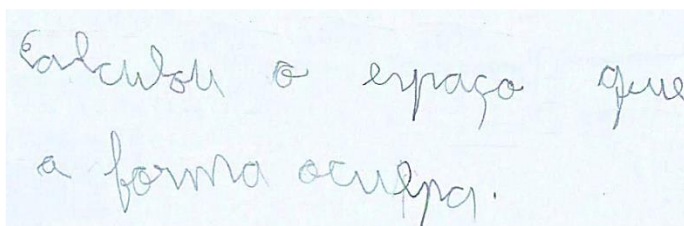 Calculou o espaço que
a forma oculpa.